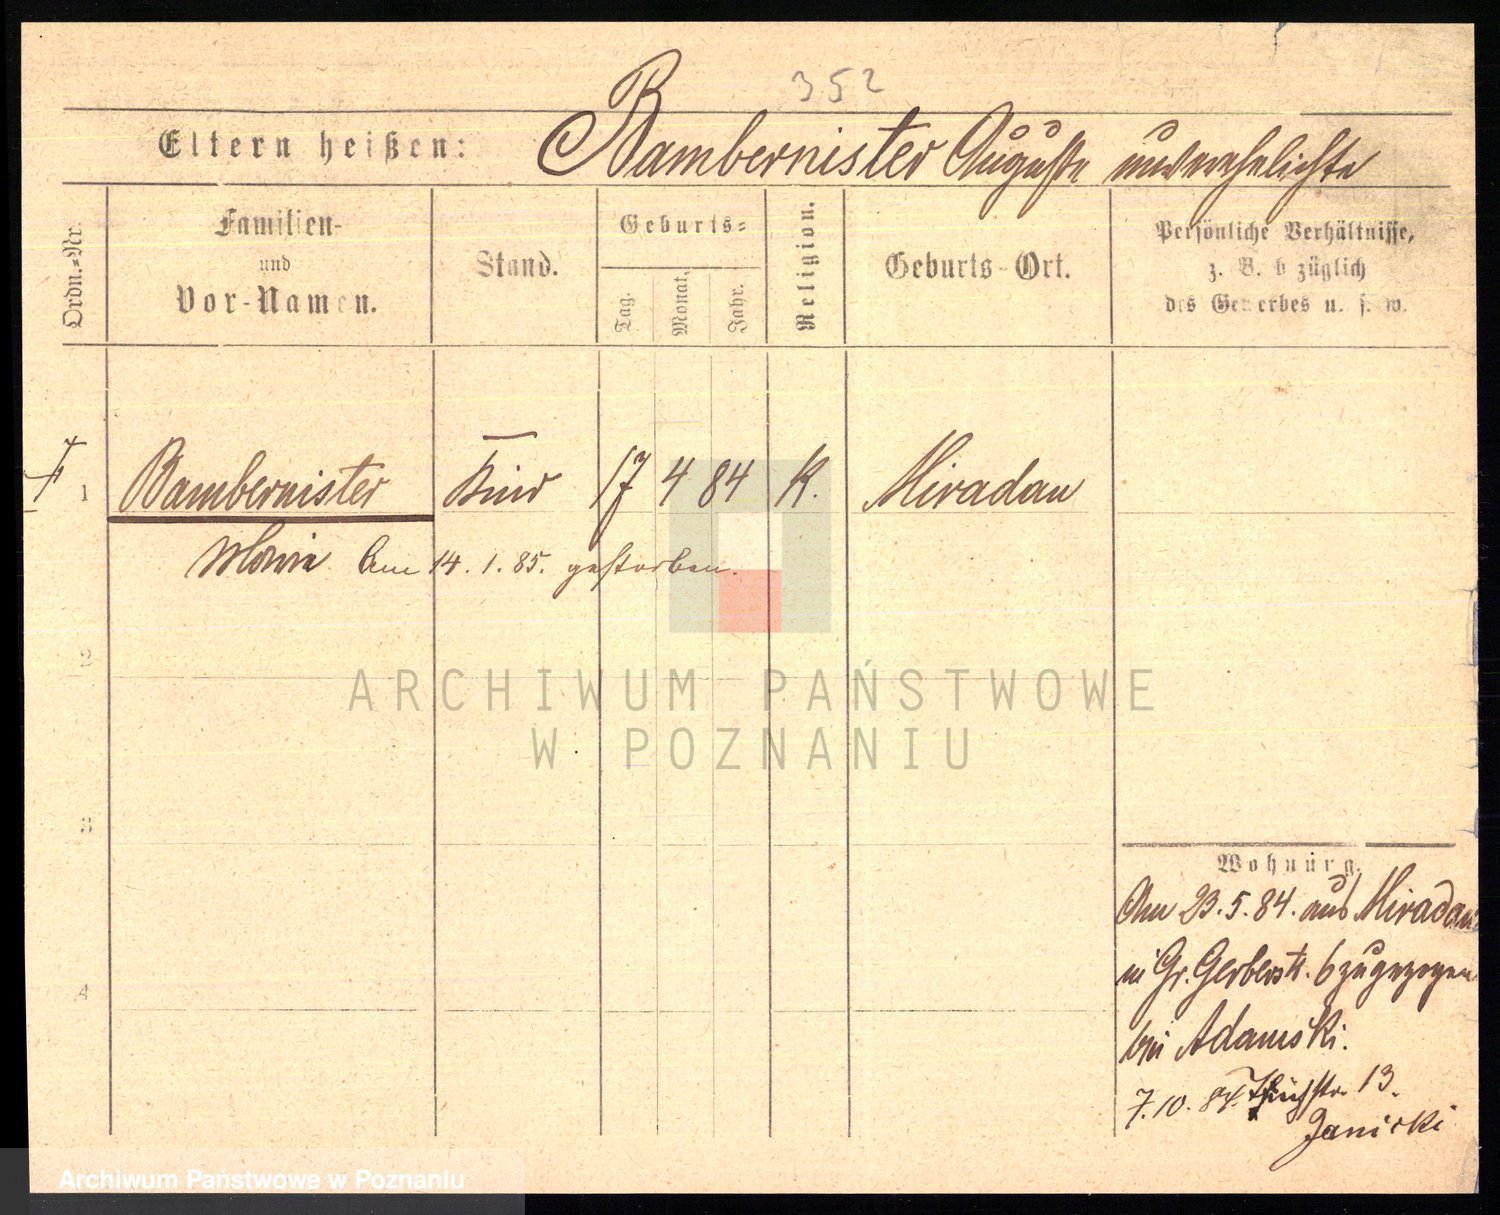 352
Eltern heißen: Bambernister Auguste unverehelichte
Ordn.-Nr.
Familien-
und
Vor-Namen.
Stand.
Geburts-
Tag.
Monat.
Jahr.
Religion.
Geburts-Ort.
Persönliche Verhältnisse,
z. B. b züglich
des Gewerbes u. s. w.
1 Bambernister Kind 17 4 84 K. Miradau
Marie Am 14. 1. 85. gestorben.
2
ARCHIWUM PAŃSTWOWE
W POZNANIU
3
Wohnung.
Am 23. 5. 84. aus Miradau
in Gr. Gerberstr. 6 zugezogen
bei Adamski.
7. 10. 84. 13.
Janicki
4
Archiwum Państwowe w Poznaniu